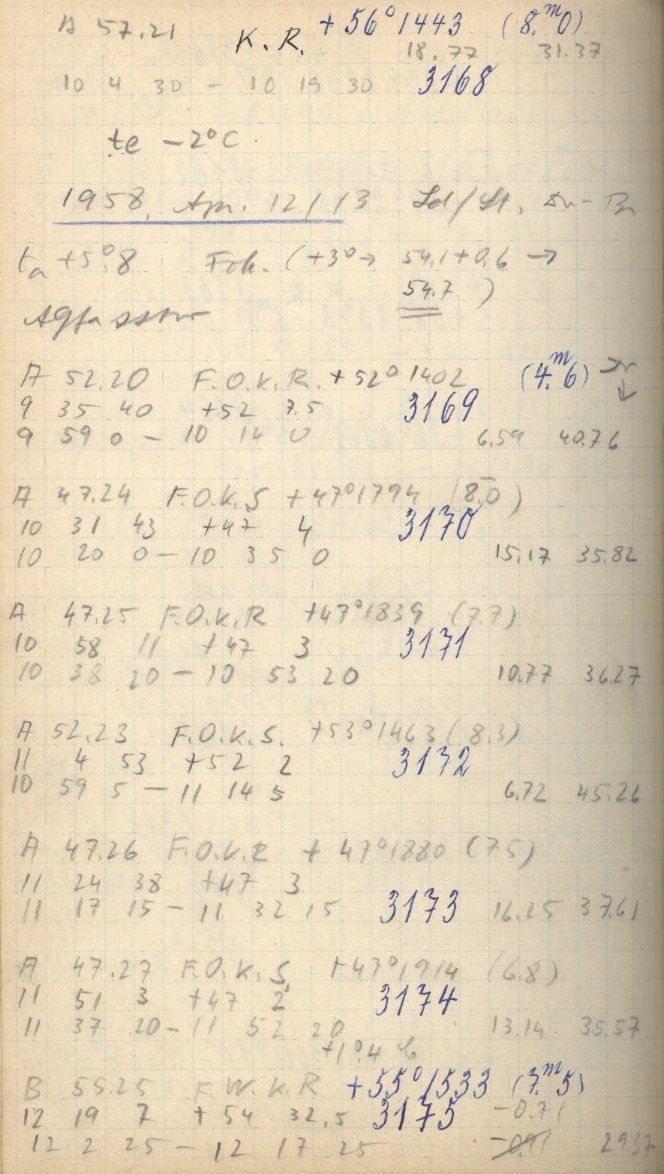 A 57.21 K.R. +56°1443 (8.ᵐ0)
18.77 31.37
10 4 30 - 10 19 30 3168
te -2°C
1958. Apr. 12/13
ta +5°.8 Fok. (+3° → 54.1+0.6 →
54.7)
A 52.20 F.O.K.R. +52° 1402 (4.ᵐ6)
9 35 40 +52 7.5 3169
9 59 0 - 10 14 0 6.59 40.76
A 47.24 F.O.K.S +47°1794 (8.0)
10 31 43 +47 4 3170
10 20 0 - 10 35 0 15.17 35.82
A 47.25 F.O.K.R +47°1839 (7.7)
10 58 11 +47 3 3171
10 38 20 - 10 53 20 10.77 36.27
A 52.23 F.O.K.S. +53°1463 (8.3)
11 4 53 +52 2 3172
10 59 5 - 11 14 5 6.72 45.26
A 47.26 F.O.K.R +47°1880 (7.5)
11 24 38 +47 3
11 17 15 - 11 32 15 3173 16.25 37.61
A 47.27 F.O.K.S +47°1914 (6.8)
11 51 3 +47 2 3174
11 37 20 - 11 52 20 13.14 35.57
+1°.4
B 55.25 F.W.K.R +55°1533 (7.ᵐ5)
12 19 7 +54 32.5 3175 -0.71
12 2 25 - 12 17 25 29.37